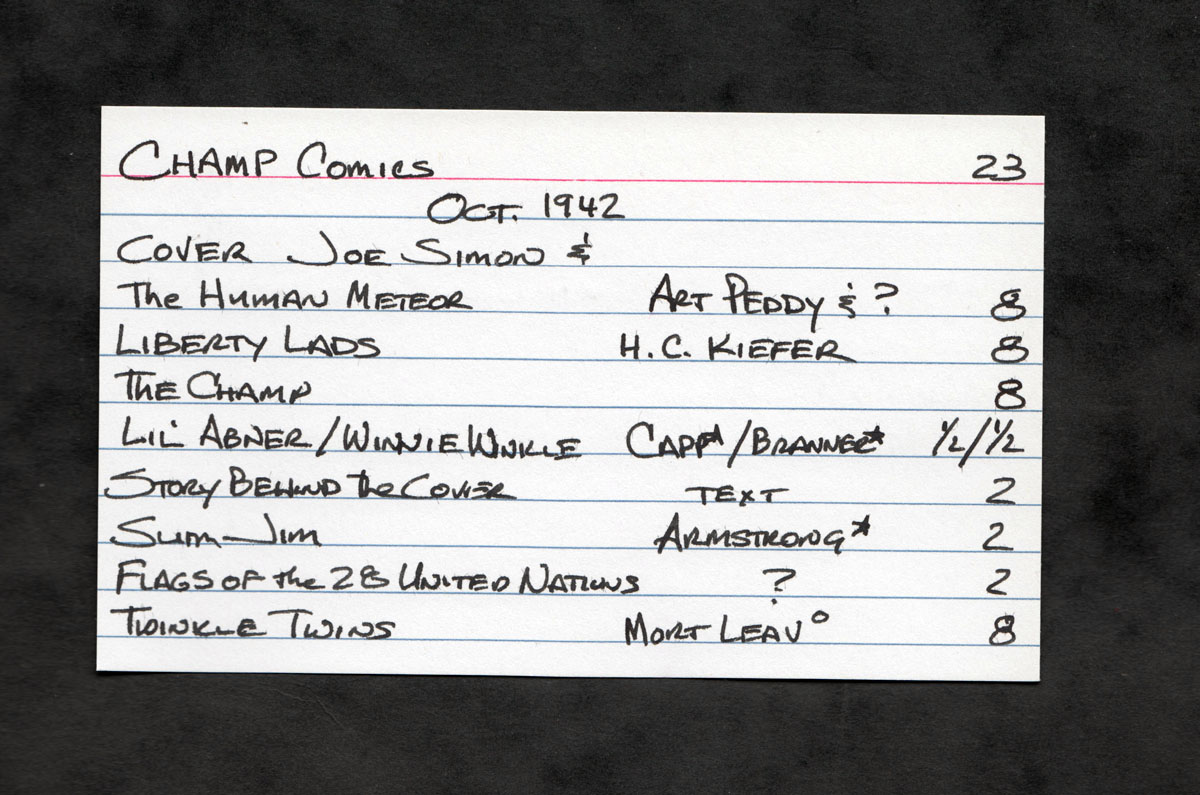 CHAMP COMICS 23
OCT. 1942
COVER JOE SIMON &
The HUMAN METEOR ART PEDDY & ? 8
LIBERTY LADS H.C. KIEFER 8
THE CHAMP 8
LIL' ABNER/WINNIE WINKLE CAPP*/BRANNER* 1/2/1/2
STORY BEHIND the COVER TEXT 2
SLIM-JIM ARMSTRONG* 2
FLAGS OF the 28 UNITED NATIONS ? 2
TWINKLE TWINS MORT LEAV° 8